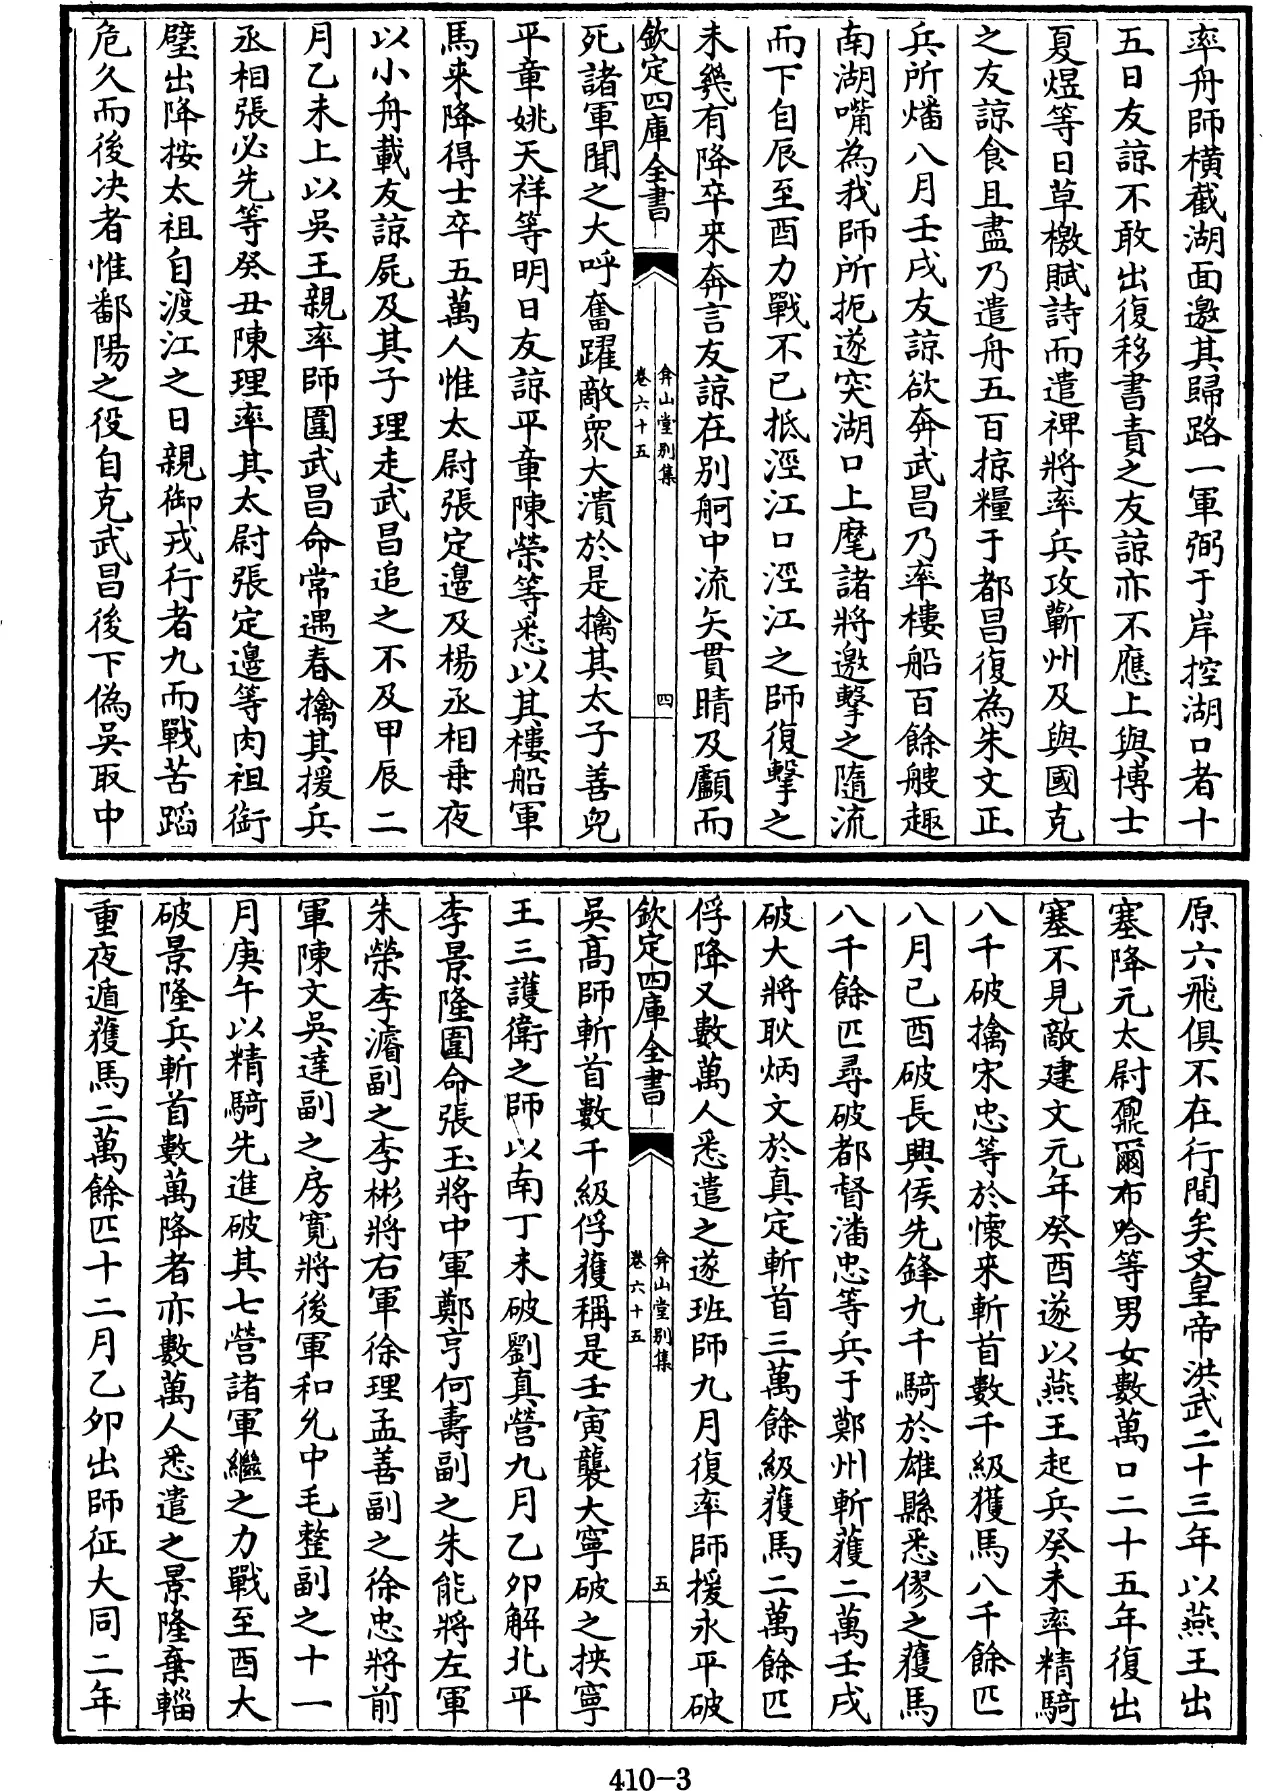 率舟師橫截湖面邀其歸路一軍䂎于岸控湖口者十
五日友諒不敢出復移書責之友諒亦不應上與博士
夏煜等日草檄賦詩而遣裨將率兵攻蘄州及與國克
之友諒食且盡乃遣舟五百掠糧于都昌復為朱文正
兵所燔八月壬戌友諒欲奔武昌乃率樓船百餘艘趣
南湖嘴為我師所扼遂突湖口上麾諸將邀擊之隨流
而下自辰至酉力戰不已抵涇江口涇江之師復擊之
未幾有降卒來奔言友諒在别舸中流矢貫睛及顱而
欽定四庫全書
弇山堂别集
卷六十五
四
死諸軍聞之大呼奮躍敵衆大潰於是擒其太子善兒
平章姚天祥等明日友諒平章陳榮等悉以其樓船軍
馬來降得士卒五萬人惟太尉張定邊及楊丞相乗夜
以小舟載友諒屍及其子理走武昌追之不及甲辰二
月乙未上以吳王親率師圍武昌命常遇春擒其援兵
丞相張必先等癸丑陳理率其太尉張定邊等肉袒銜
璧出降按太祖自渡江之日親御戎行者九而戰苦蹈
危久而後決者惟鄱陽之役自克武昌後下偽吳取中
原六飛俱不在行間矣文皇帝洪武二十三年以燕王出
塞降元太尉鼐爾布哈等男女數萬口二十五年復出
塞不見敵建文元年癸酉遂以燕王起兵癸未率精騎
八千破擒宋忠等於懷來斬首數千級獲馬八千餘匹
八月己酉破長興侯先鋒九千騎於雄縣悉僇之獲馬
八千餘匹尋破都督潘忠等兵于鄭州斬獲二萬壬戌
破大將耿炳文於真定斬首三萬餘級獲馬二萬餘匹
俘降又數萬人悉遣之遂班師九月復率師援永平破
欽定四庫全書
弇山堂别集
卷六十五
五
吳高師斬首數千級俘獲稱是壬寅襲大寧破之挾寧
王三護衛之師以南丁未破劉真營九月乙夘解北平
李景隆圍命張玉將中軍鄭亨何壽副之朱能將左軍
朱榮李濬副之李彬將右軍徐理孟善副之徐忠將前
軍陳文吳達副之房寛將後軍和允中毛整副之十一
月庚午以精騎先進破其七營諸軍繼之力戰至酉大
破景隆兵斬首數萬降者亦數萬人悉遣之景隆棄輜
重夜遁獲馬二萬餘匹十二月乙夘出師征大同二年
410-3